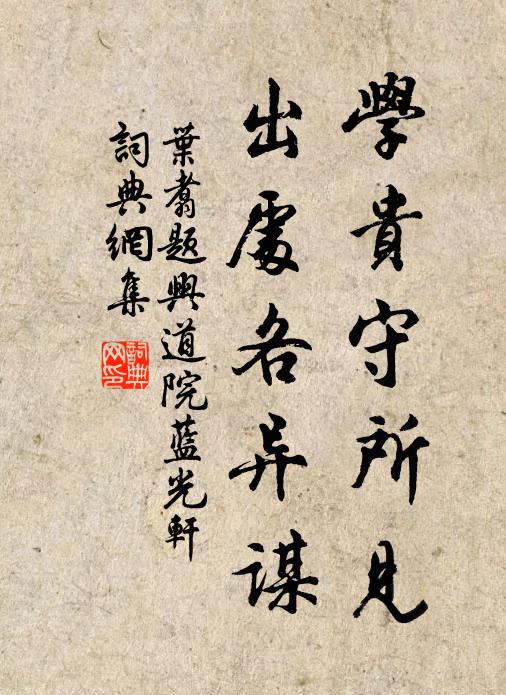 學貴守所見
出處各异謀
葉翥題興道院藍光軒
詞典網集
詞典
网印